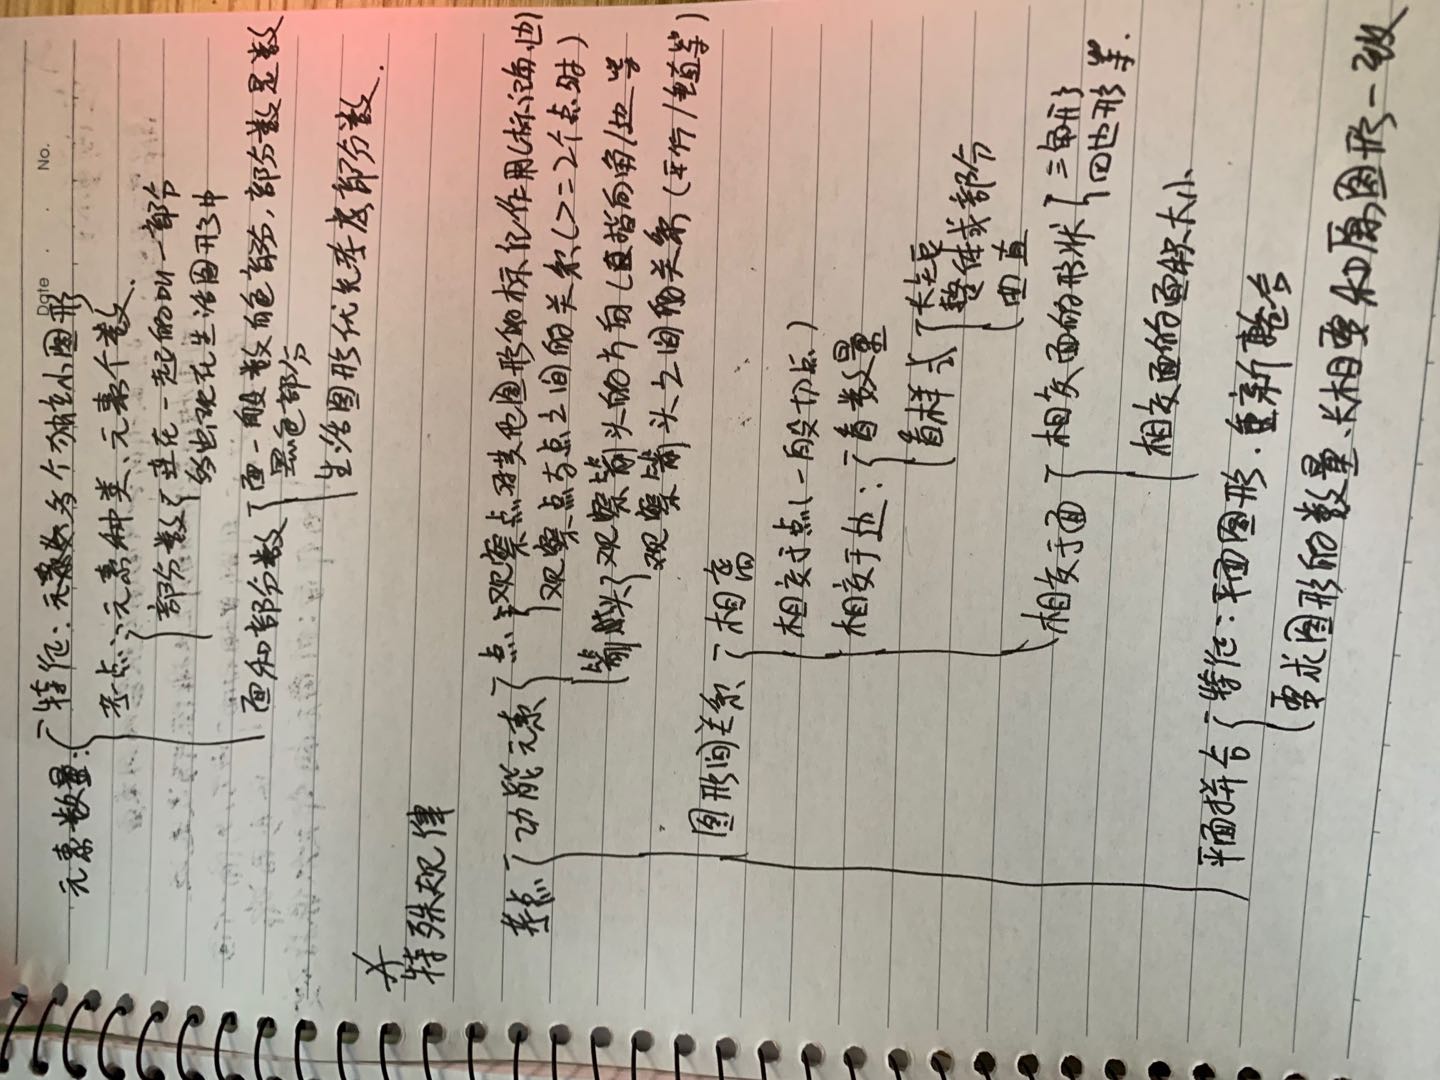 Date . . No.
元素数量: 特征: 元素数多个独立小图形
考点: 元素种类、元素个数.
部分数 连在一起的叫一部分
多出现在生活图形中
面和部分数 面一般数白色部分,部分数是数
黑色部分
生活图形优先考虑部分数.
特殊规律
考点 功能元素 点 观察点对其他图形的标记作用(标记角、边)
观察点与点之间的关系(>=2个点时)
箭头 观察箭头的方向(直指向角/边等
观察箭头之间的关系(平行/垂直等)
图形间关系 相离
相交于点(一般切点)
相交于边: 看数量
看样式 长短
整体或部分
曲直
相交于面 相交面的形状 三角形
四边形等.
相交面的面积大小
平面拼合 特征: 平面图形.重新整合
要求图形的数量、长相要和原图形一致